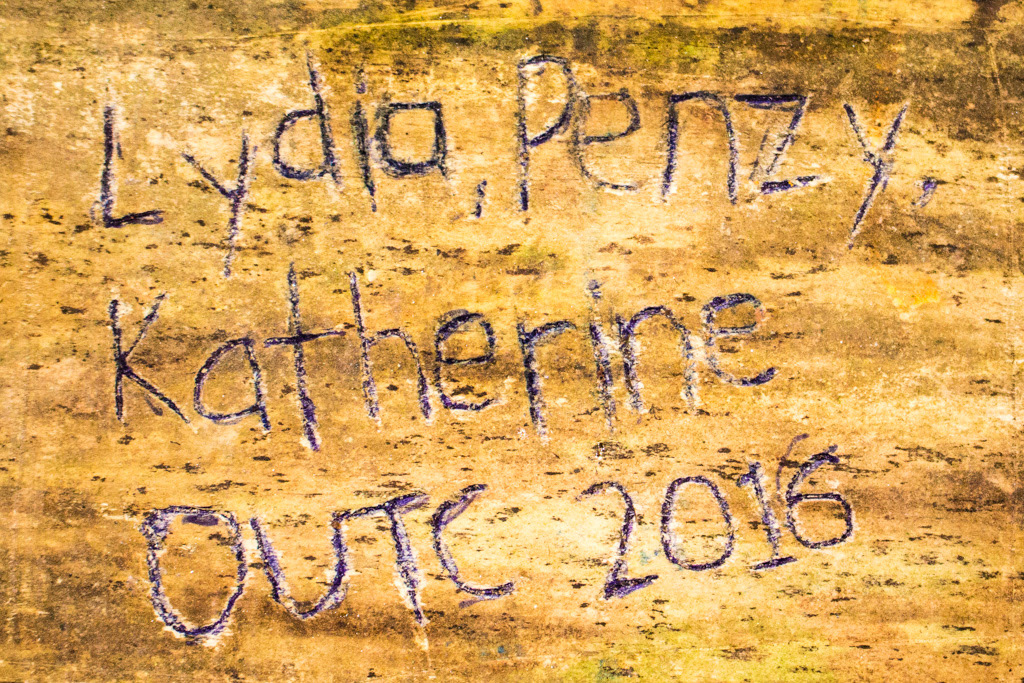 Lydia, Penzy,
Katherine
OUTC 2016